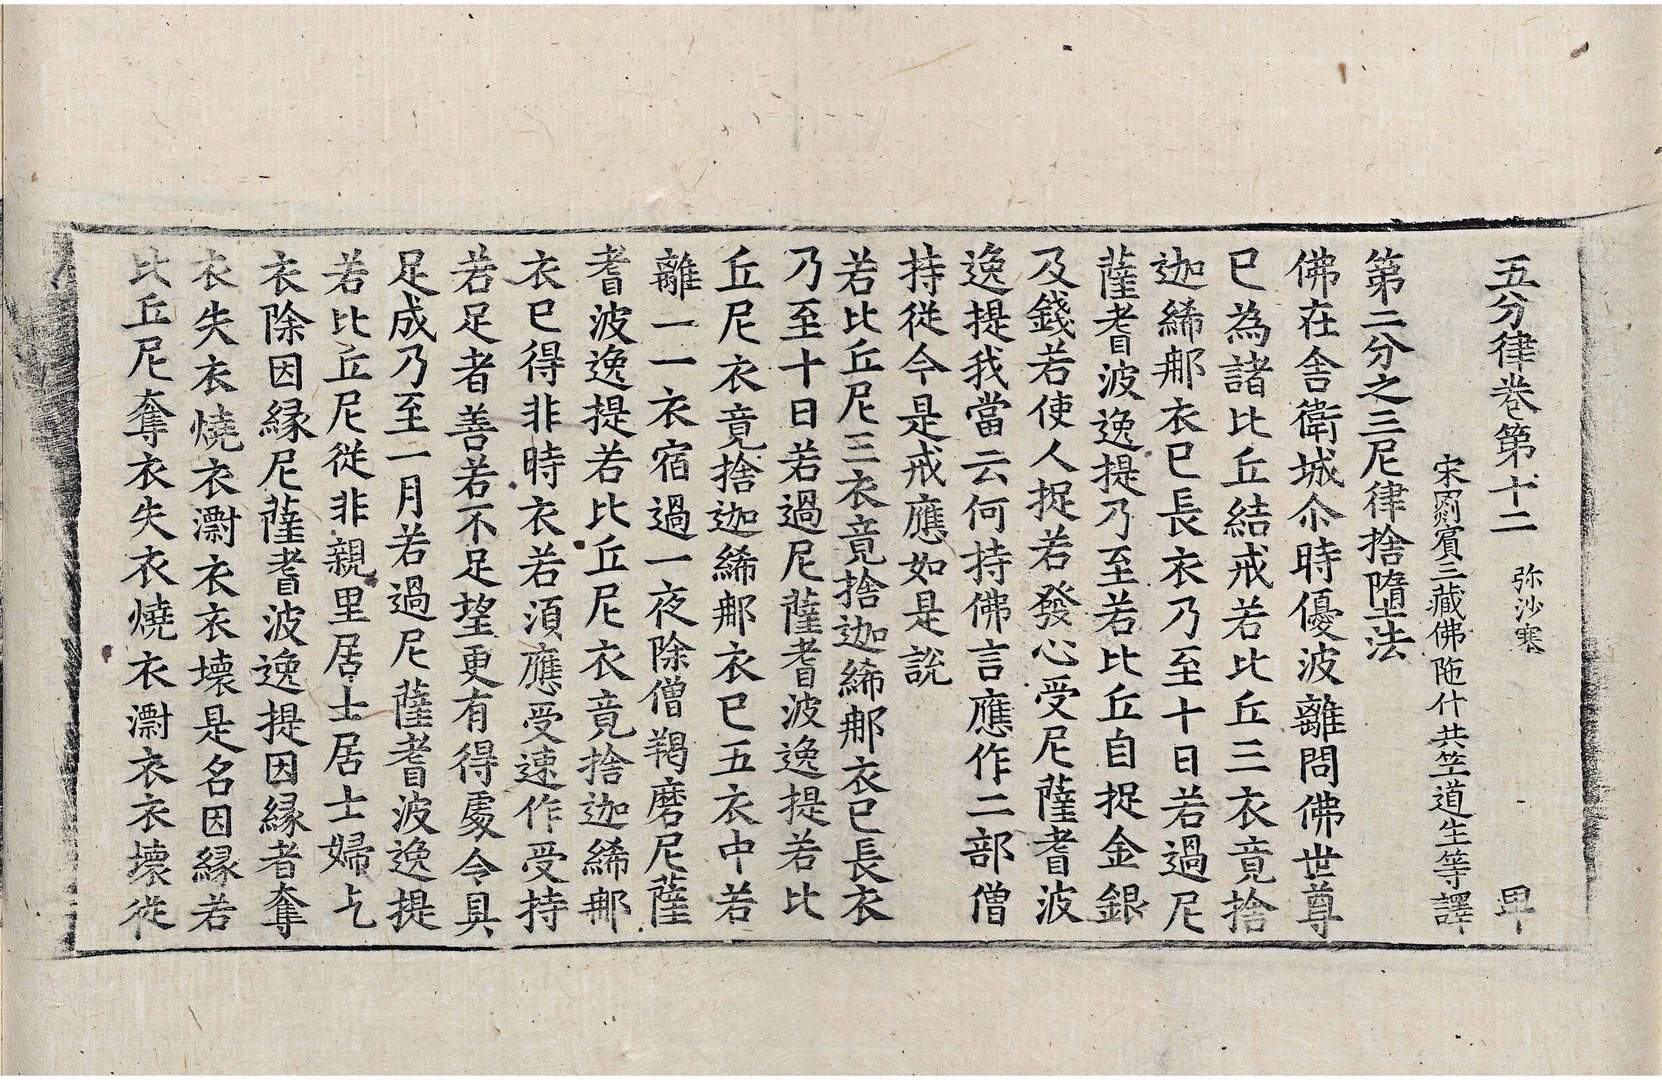 五分律卷第十二 弥沙塞 毕
宋罽賓三藏佛陁什共笁道生等譯
第二分之三尼律捨墮法
佛在舍衛城尒時優波離問佛世尊
已為諸比丘結戒若比丘三衣竟捨
迦絺𨙻衣已長衣乃至十日若過尼
薩耆波逸提乃至若比丘自捉金銀
及錢若使人捉若發心受尼薩耆波
逸提我當云何持佛言應作二部僧
持從今是戒應如是說
若比丘尼三衣竟捨迦絺𨙻衣已長衣
乃至十日若過尼薩耆波逸提若比
丘尼衣竟捨迦絺𨙻衣已五衣中若
離一一衣宿過一夜除僧羯磨尼薩
耆波逸提若比丘尼衣竟捨迦絺𨙻
衣已得非時衣若湏應受速作受持
若足者善若不足望更有得處令具
足成乃至一月若過尼薩耆波逸提
若比丘尼從非親里居士居士婦乞
衣除因緣尼薩耆波逸提因緣者奪
衣失衣燒衣㵱衣衣壞是名因緣若
比丘尼奪衣失衣燒衣㵱衣衣壞從